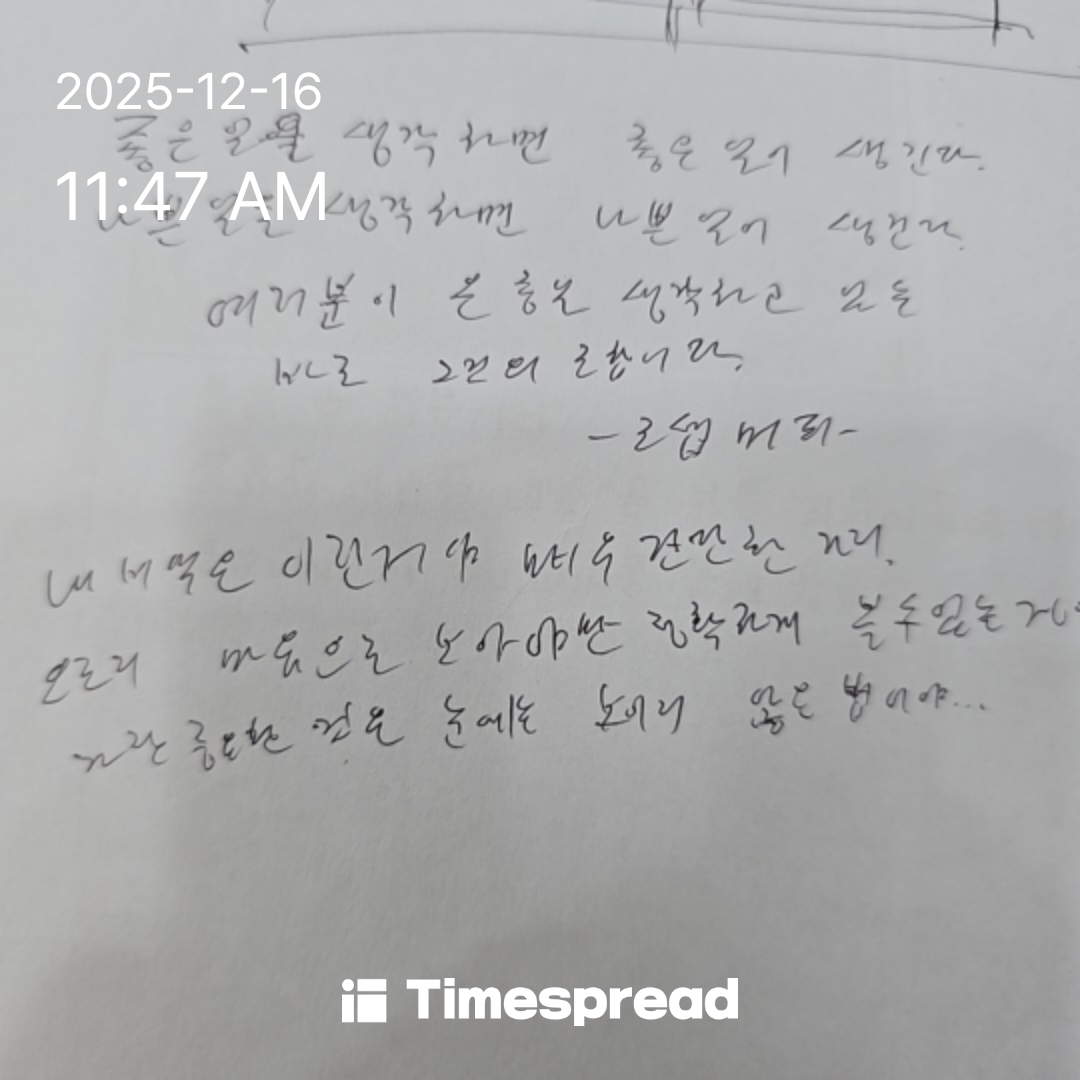 2025-12-16
좋은 일을 생각하면 좋은 일이 생긴다.
11:47 AM
나쁜 일을 생각하면 나쁜 일이 생긴다.
여러분이 온종일 생각하고 있는
바로 그것의 조합니다.
-조셉 머피-
내 비밀은 이런거야 매우 간단한 거지.
오로지 마음으로 보아야만 정확하게 볼 수 있는 거야
가장 중요한 것은 눈에는 보이지 않는 법이야...
Timespread